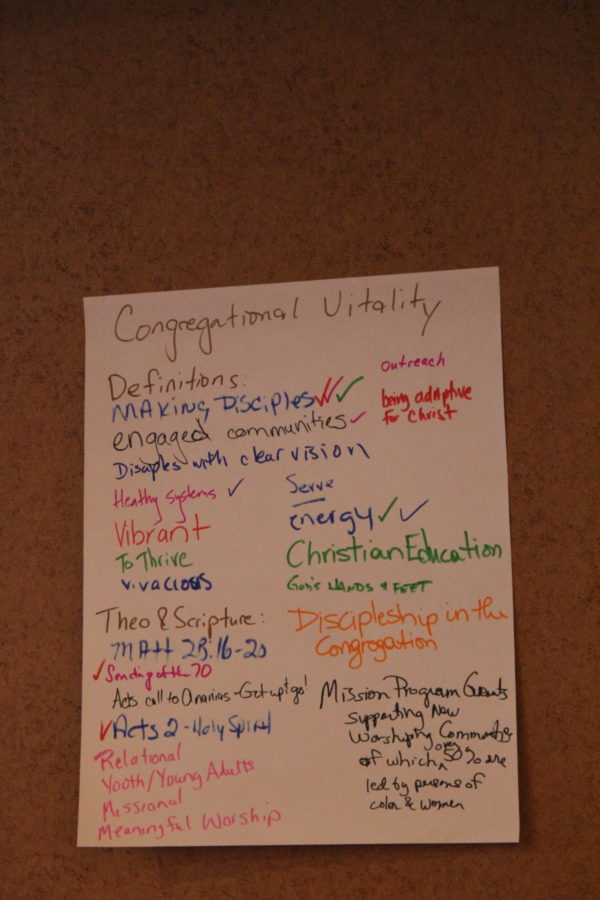 Congregational Vitality
Definitions:
MAKING DISCIPLES
engaged communities
Disciples with clear vision
Healthy systems
Vibrant
To Thrive
vivacious
outreach
being adaptive
for Christ
Serve
energy
Christian Education
God's HANDS & FEET
Theo & Scripture:
MAtt 28:16-20
Sending of the 70
Acts call to Ananias - Get up & go!
Acts 2 - Holy Spirit
Relational
Youth/Young Adults
Missional
Meaningful Worship
Discipleship in the
Congregation
Mission Program Grants
supporting New
Worshiping Communities
of which over 50% are
led by persons of
color & women